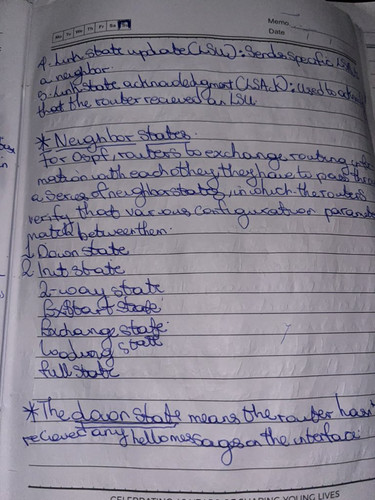 Mo Tu We Th Fr Sa
Memo
Date / /
4. Link state update (LSU): Sends specific LSAs
a neighbor.
5. Link state acknowledgment (LSAck): Used to
that the router received an LSU
* Neighbor states.
For OSPF, routers to exchange routing
mation with each other, they have to pass
a series of neighbor states, in which the routers
verify that various configuration
match between them.
1. Down state
2. Init state
2-way state
ExStart state
Exchange state.
Loading state
full state
* The down state means the router hasn't
recieved any hello messages on the interface.
YOUNG LIVES